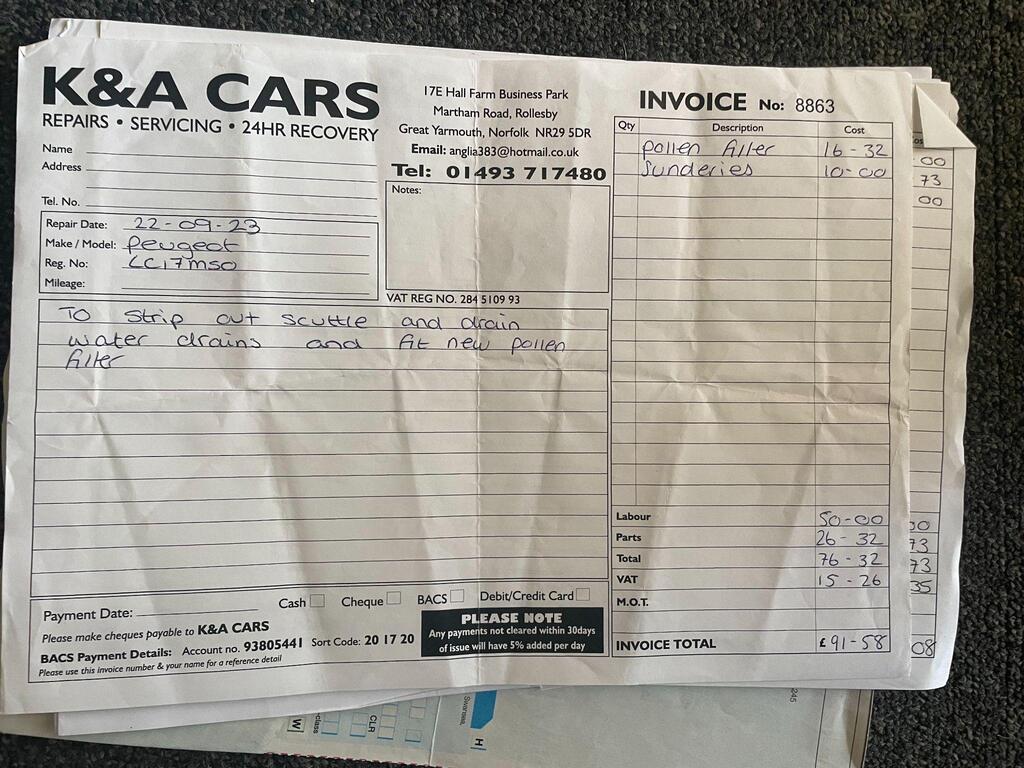 K&A CARS
REPAIRS • SERVICING • 24HR RECOVERY
17E Hall Farm Business Park
Martham Road, Rollesby
Great Yarmouth, Norfolk NR29 5DR
Email: anglia383@hotmail.co.uk
Tel: 01493 717480
INVOICE No: 8863
Name
Address
Tel. No.
Repair Date: 22-09-23
Make / Model: Peugeot
Reg. No: LC17MSO
Mileage:
Notes:
VAT REG NO. 284 5109 93
To strip out scuttle and drain
water drains and fit new pollen
filter
Qty Description Cost
pollen filter 16-32
Sunderies 10-00
Labour 50-00
Parts 26-32
Total 76-32
VAT 15-26
M.O.T.
INVOICE TOTAL £ 91-58
Payment Date: Cash Cheque BACS Debit/Credit Card
Please make cheques payable to K&A CARS
BACS Payment Details: Account no. 93805441 Sort Code: 20 17 20
Please use this invoice number & your name for a reference detail
PLEASE NOTE
Any payments not cleared within 30days
of issue will have 5% added per day
00
73
00
00
73
73
35
08
Swansea
H
245
CLR
-class
W